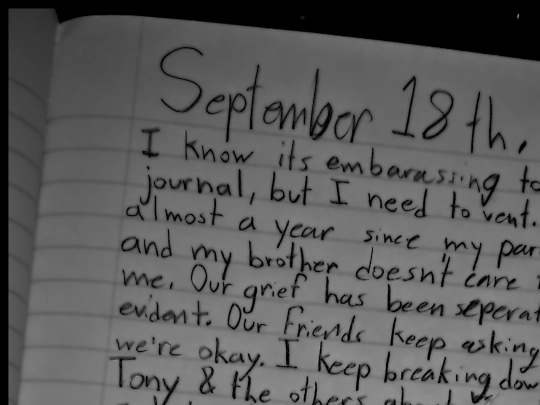 September 18th,
I know its embarassing to
journal, but I need to vent.
almost a year since my par
and my brother doesn't care
me. Our grief has been seperat
evident. Our friends keep asking
we're okay. I keep breaking dow
Tony & the others